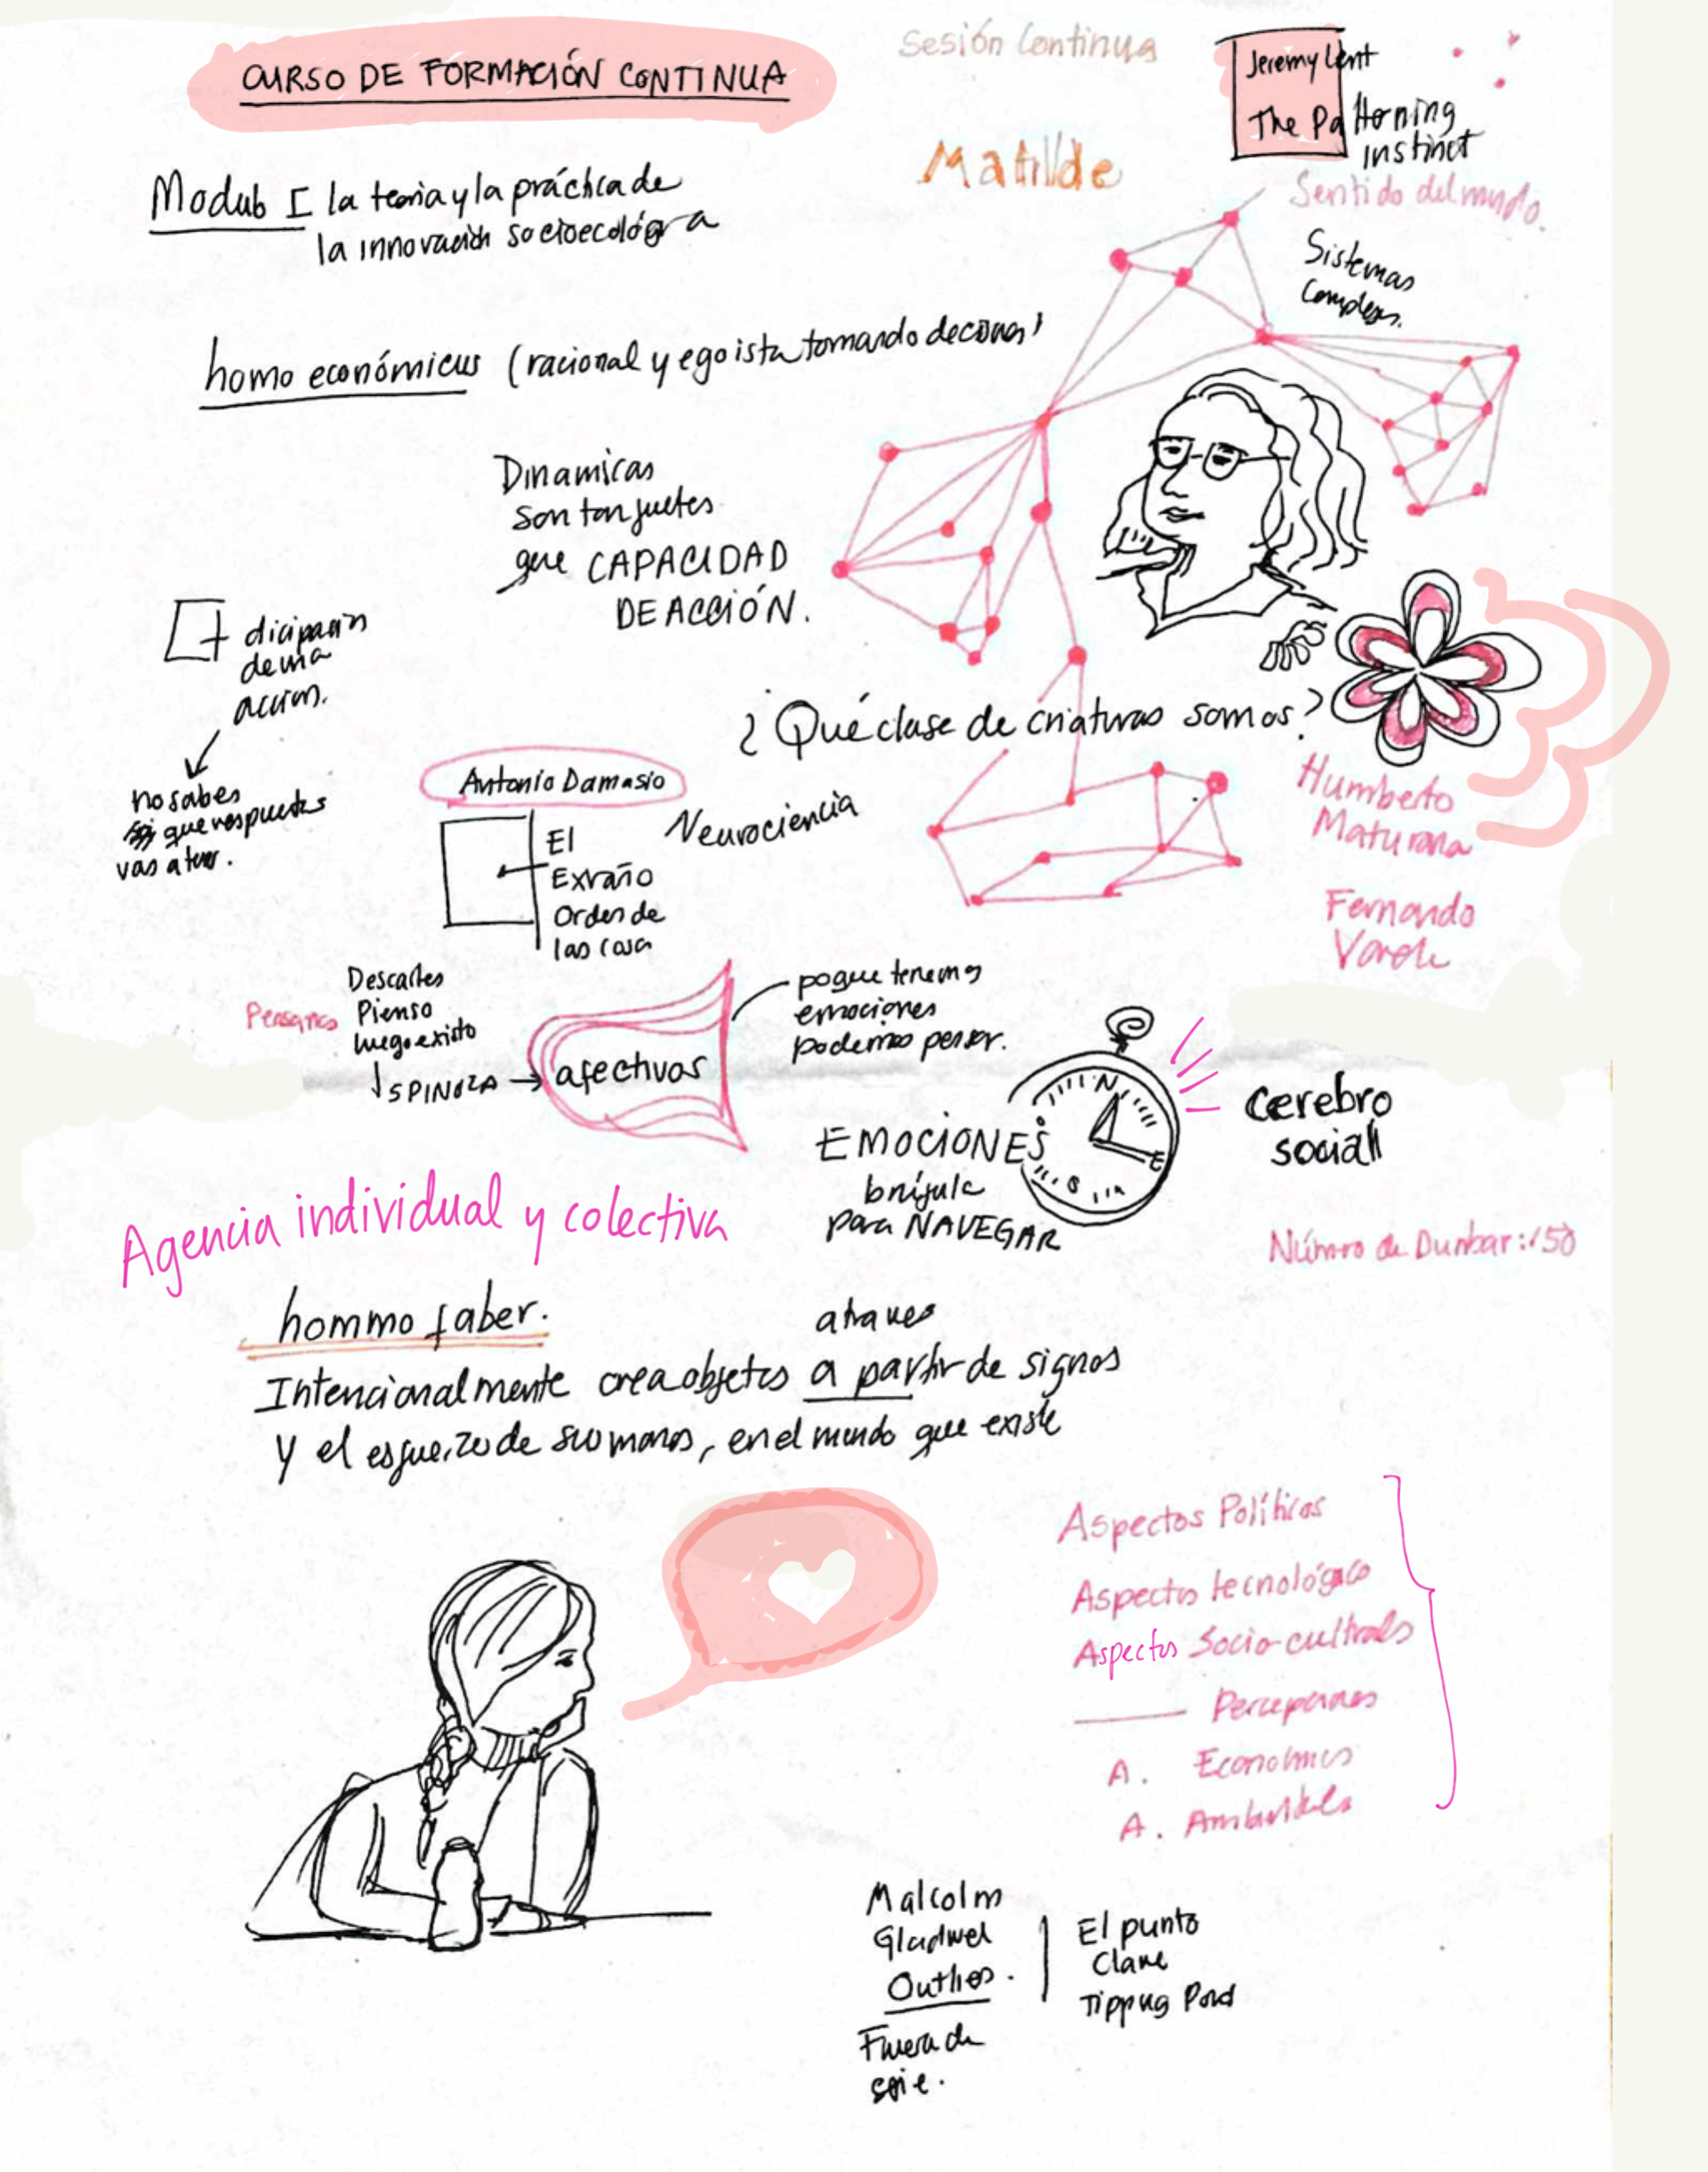 CURSO DE FORMACIÓN CONTINUA
Sesión Continua
Jeremy Lent
The Patterning
instinct
Matilde
Sentido del mundo.
Modulo I la teoria y la práctica de
la innovación socioecológica
Sistemas
Complejos.
homo económicus (racional y egoista tomando
Dinamicas
Son tan
que CAPACIDAD
DE ACCIÓN.
de una
acción.
no sabes
que respuestas
vas a
¿Qué clase de criaturas somos?
Antonio Damasio
Neurociencia
El
Exraño
Orden de
las cosa
Humberto
Maturana
Fernando
Descartes
Pienso
luego existo
SPINOZA → afectivos
poque tenemos
emociones
podemos penser.
EMOCIONES
brújula
para NAVEGAR
N
E
S
Cerebro
sociall
Agencia individual y colectiva
Número de Dunbar: 150
hommo faber.
atraves
Intencionalmente crea objetos a partir de signos
y el esfuerzo de sus manos, en el mundo que existe
Aspectos Políticos
Aspectos tecnológico
Aspectos Socio-culturals
Percepciones
A. Economics
A.
Malcolm
Gladwel
Outliers.
Fuera de
serie.
El punto
Clave
Tipping